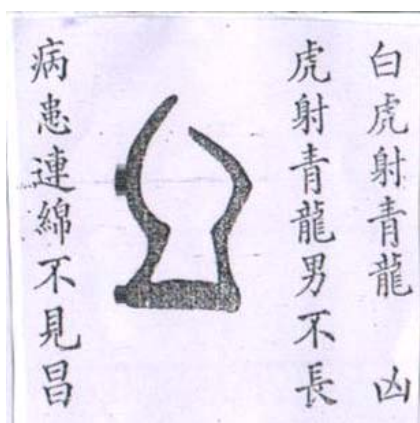 白虎射青龍 凶
虎射青龍男不長
病患連綿不見昌